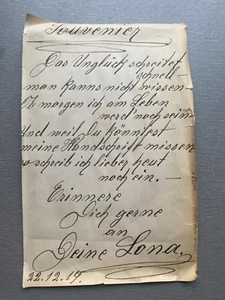 Souvenier
Das Unglück schreitet
schnell
man kanns nicht wissen
Ob morgen ich am Leben
werd' noch sein
Und weil Du könntest
meine Handschrift missen
so schreib ich lieber heut
noch ein. —
Erinnere
Dich gerne
an
Deine Lona.
22.12.19.